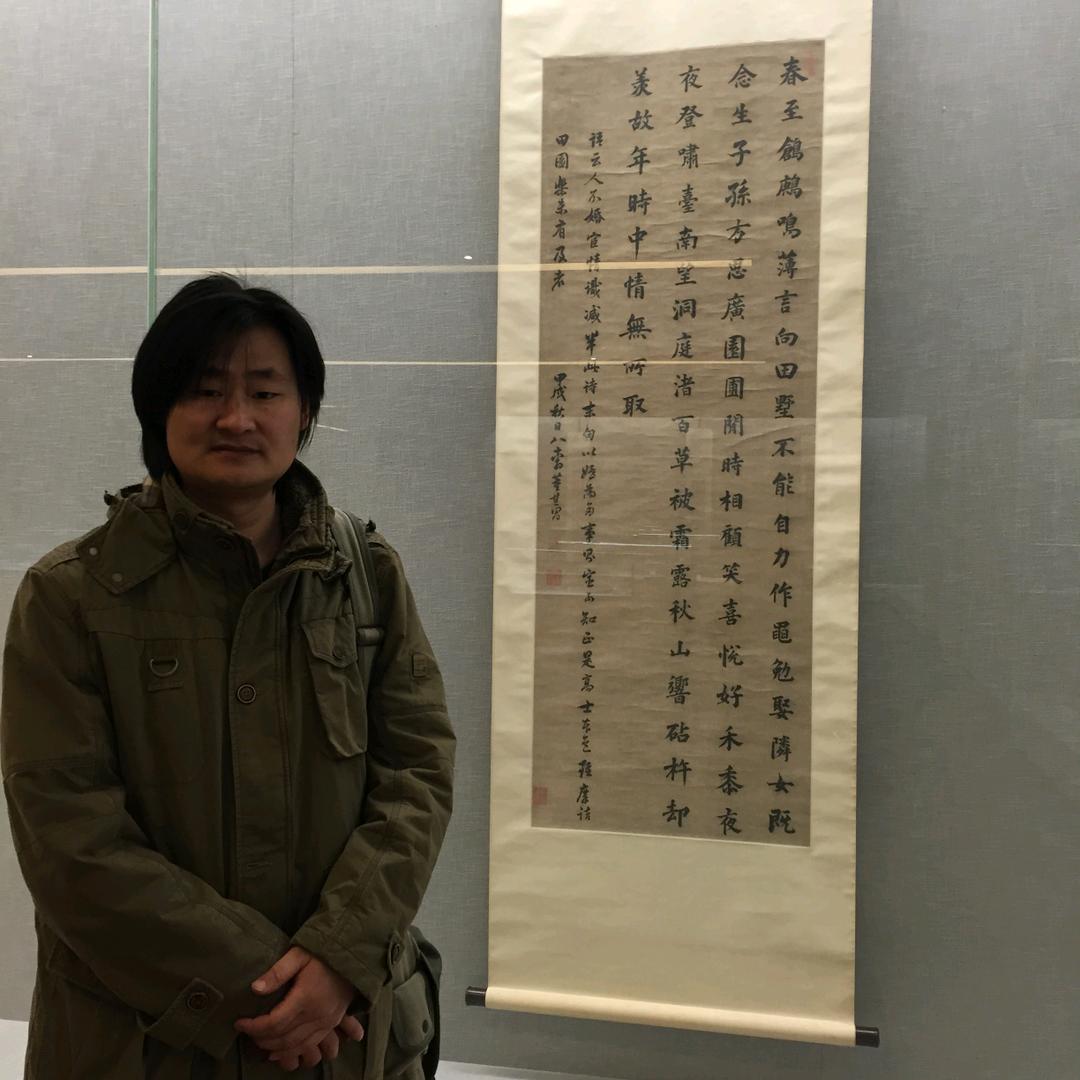 春至鶬鶊鳴薄言向田墅不能自力作黽勉娶隣女既
念生子孫方思廣園圃閒時相顧笑喜悅好禾黍夜
夜登嘯臺南望洞庭渚百草被霜露秋山響砧杵却
羨故年時中情無所取
語云人不婚宦情識減半此诗末句以婚為多事
知正是高士本色
田園樂未有及者
甲戌秋日八十翁董其昌